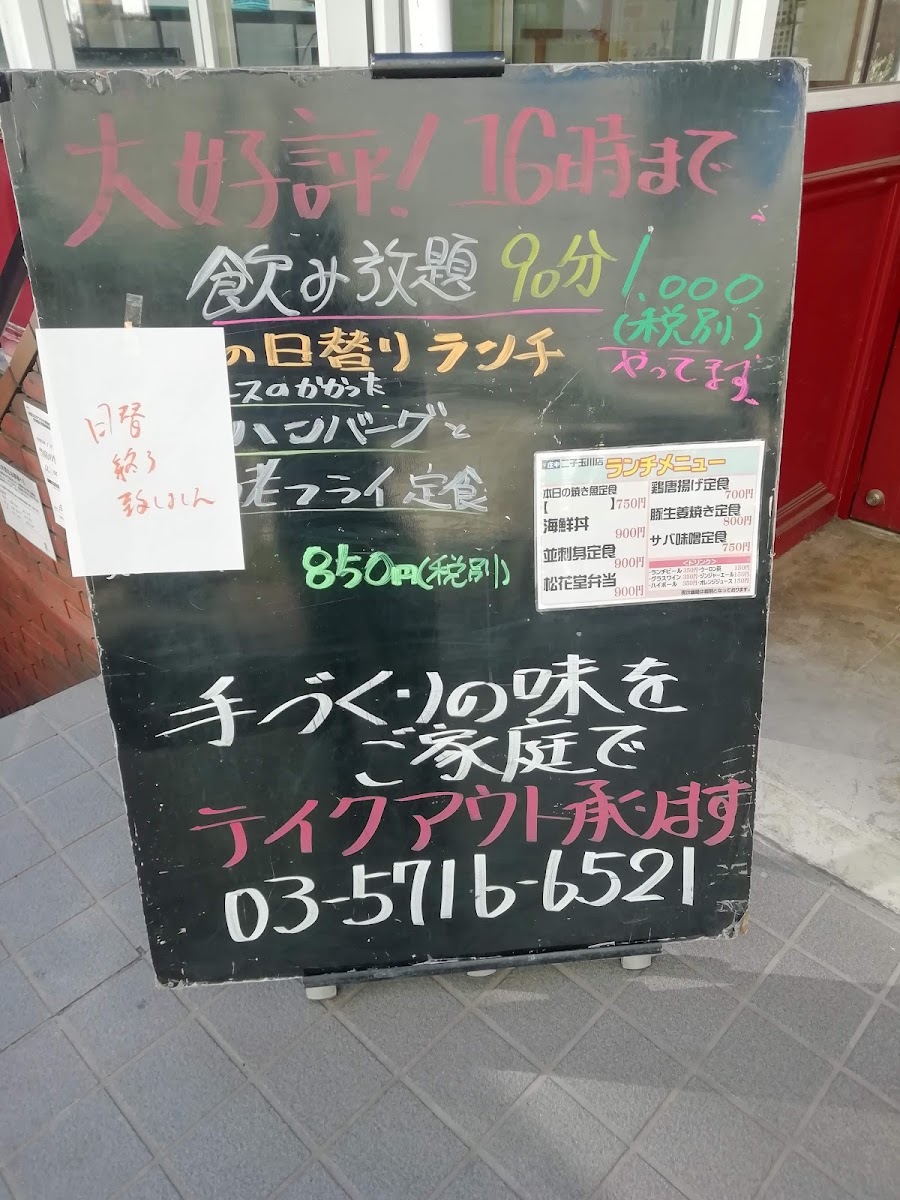 大好評！16時まで
飲み放題 90分 1,000
(税別)
やってます
の日替りランチ
ースのかかった
ハンバーグと
老フライ定食
850円(税別)
日替
終了
致しました
二子玉川店
ランチメニュー
本日の焼き魚定食
【 】750円
海鮮丼
900円
並刺身定食
900円
松花堂弁当
900円
鶏唐揚げ定食
700円
豚生姜焼き定食
800円
サバ味噌定食
750円
<ドリンク>
・ランチビール 350円・ウーロン茶 150円
・グラスワイン 350円・ジンジャーエール 150円
・ハイボール 350円・オレンジジュース 150円
手づくりの味を
ご家庭で
テイクアウト承ります
03-5716-6521